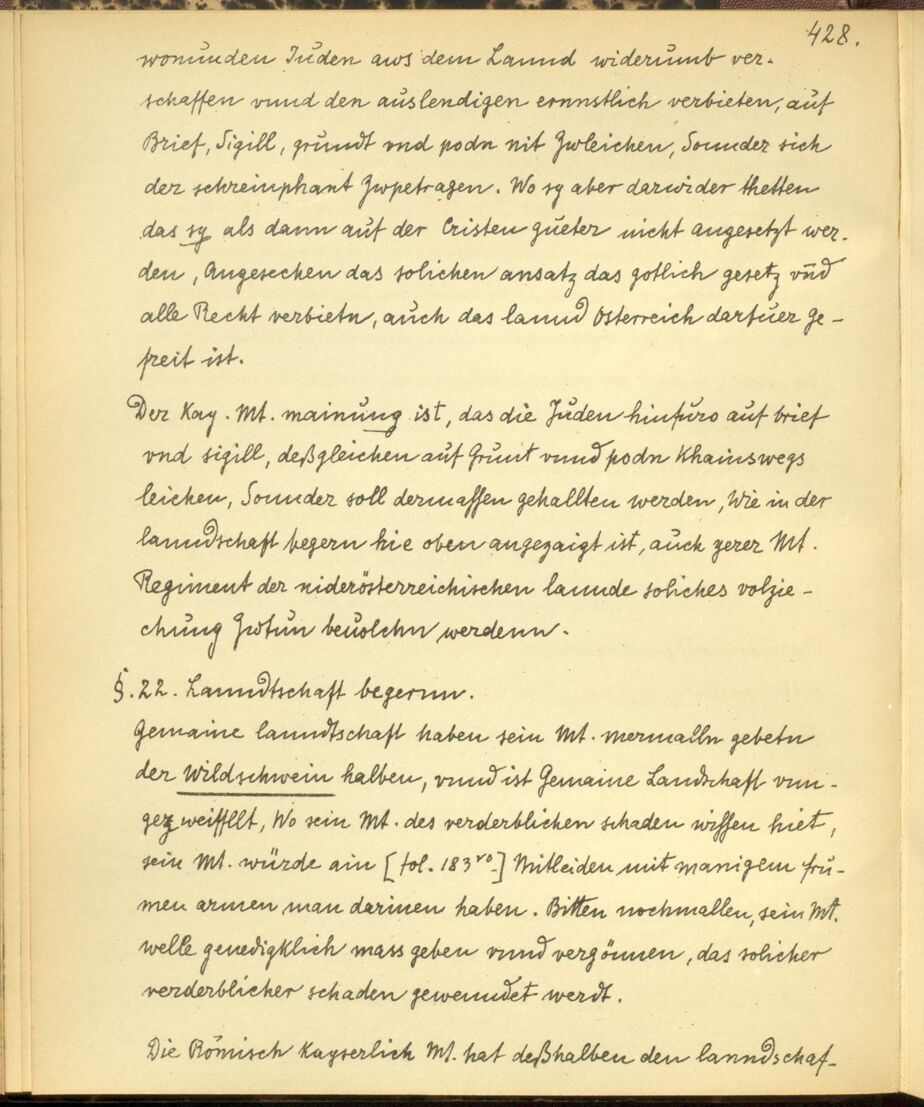 428.
wonunden Juden aws dem Lannd widerumb ver-
schaffen vnnd den auslendigen ernnstlich verbieten, auf
Brief, Sigill, grundt vnd podn nit Zwleichen, Sonnder sich
der schreinphant Zwpetragen. Wo sy aber darwider thetten
das sy als dann auf der Cristen güeter nicht angesetzt wer-
den, Angesechen das solichen ansatz das gotlich gesetz vnd
alle Recht verbietn, auch das lannd Osterreich darfuer ge-
freit ist.
Der Kay. Mt. mainung ist, das die Juden hinfuro auf brief
vnd sigill, deßgleichen auf Grunt vnnd podn Khainswegs
leichen, Sonnder soll dermassen gehallten werden, Wie in der
lanndschaft begern hie oben angezaigt ist, auch yerer Mt.
Regiment der niderösterreichischen lannde soliches volzie-
chung Zwtun beuolchn werdenn.
§. 22. Lanndtschaft begernn.
Gemaine lanndtschaft haben sein Mt. mermalln gebetn
der Wildschwein halben, vnnd ist Gemaine Landschaft vnn-
gezweiffllt, Wo sein Mt. des verderblichen schaden wissen hiet,
sein Mt. würde ain [fol. 183vo] Mitleiden mit manigem fru-
men armen man darinen haben. Bitten nochmallen, sein Mt.
welle genedigklich mass geben vnnd vergönnen, das solicher
verderblicher schaden gewenndet werdt.
Die Römisch Kayserlich Mt. hat deßhalben den lanndschaf-